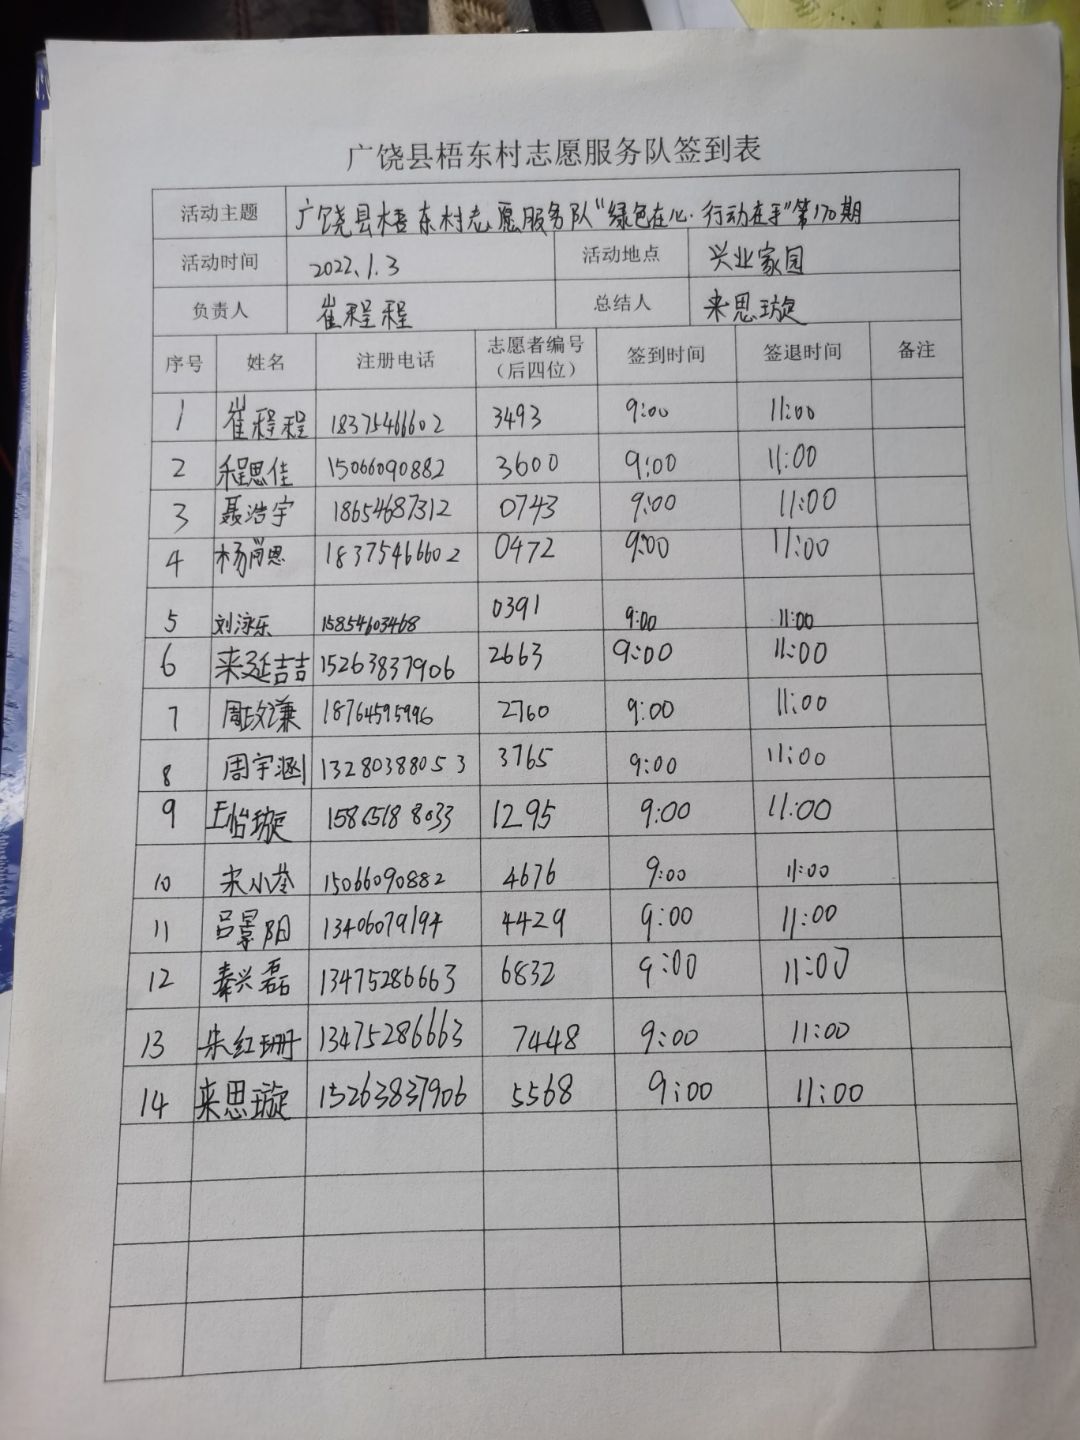 广饶县梧东村志愿服务队签到表
活动主题 广饶县梧东村志愿服务队“绿色在心·行动在手”第170期
活动时间 2022.1.3 活动地点 兴业家园
负责人 崔程程 总结人 来思璇
序号 姓名 注册电话 志愿者编号（后四位） 签到时间 签退时间 备注
1 崔程程 18375466602 3493 9:00 11:00
2 程思佳 15066090882 3600 9:00 11:00
3 聂浩宇 18654687312 0743 9:00 11:00
4 杨尚恩 18375466602 0472 9:00 11:00
5 刘泳乐 15854603468 0391 9:00 11:00
6 来延喆 15263837906 2663 9:00 11:00
7 周政谦 18764595996 2760 9:00 11:00
8 周宇涵 13280388053 3765 9:00 11:00
9 王怡璇 15865188033 1295 9:00 11:00
10 宋小苍 15066090882 4676 9:00 11:00
11 吕景阳 13406079194 4429 9:00 11:00
12 秦兴磊 13475286663 6832 9:00 11:00
13 朱红珊 13475286663 7448 9:00 11:00
14 来思璇 15263837906 5568 9:00 11:00